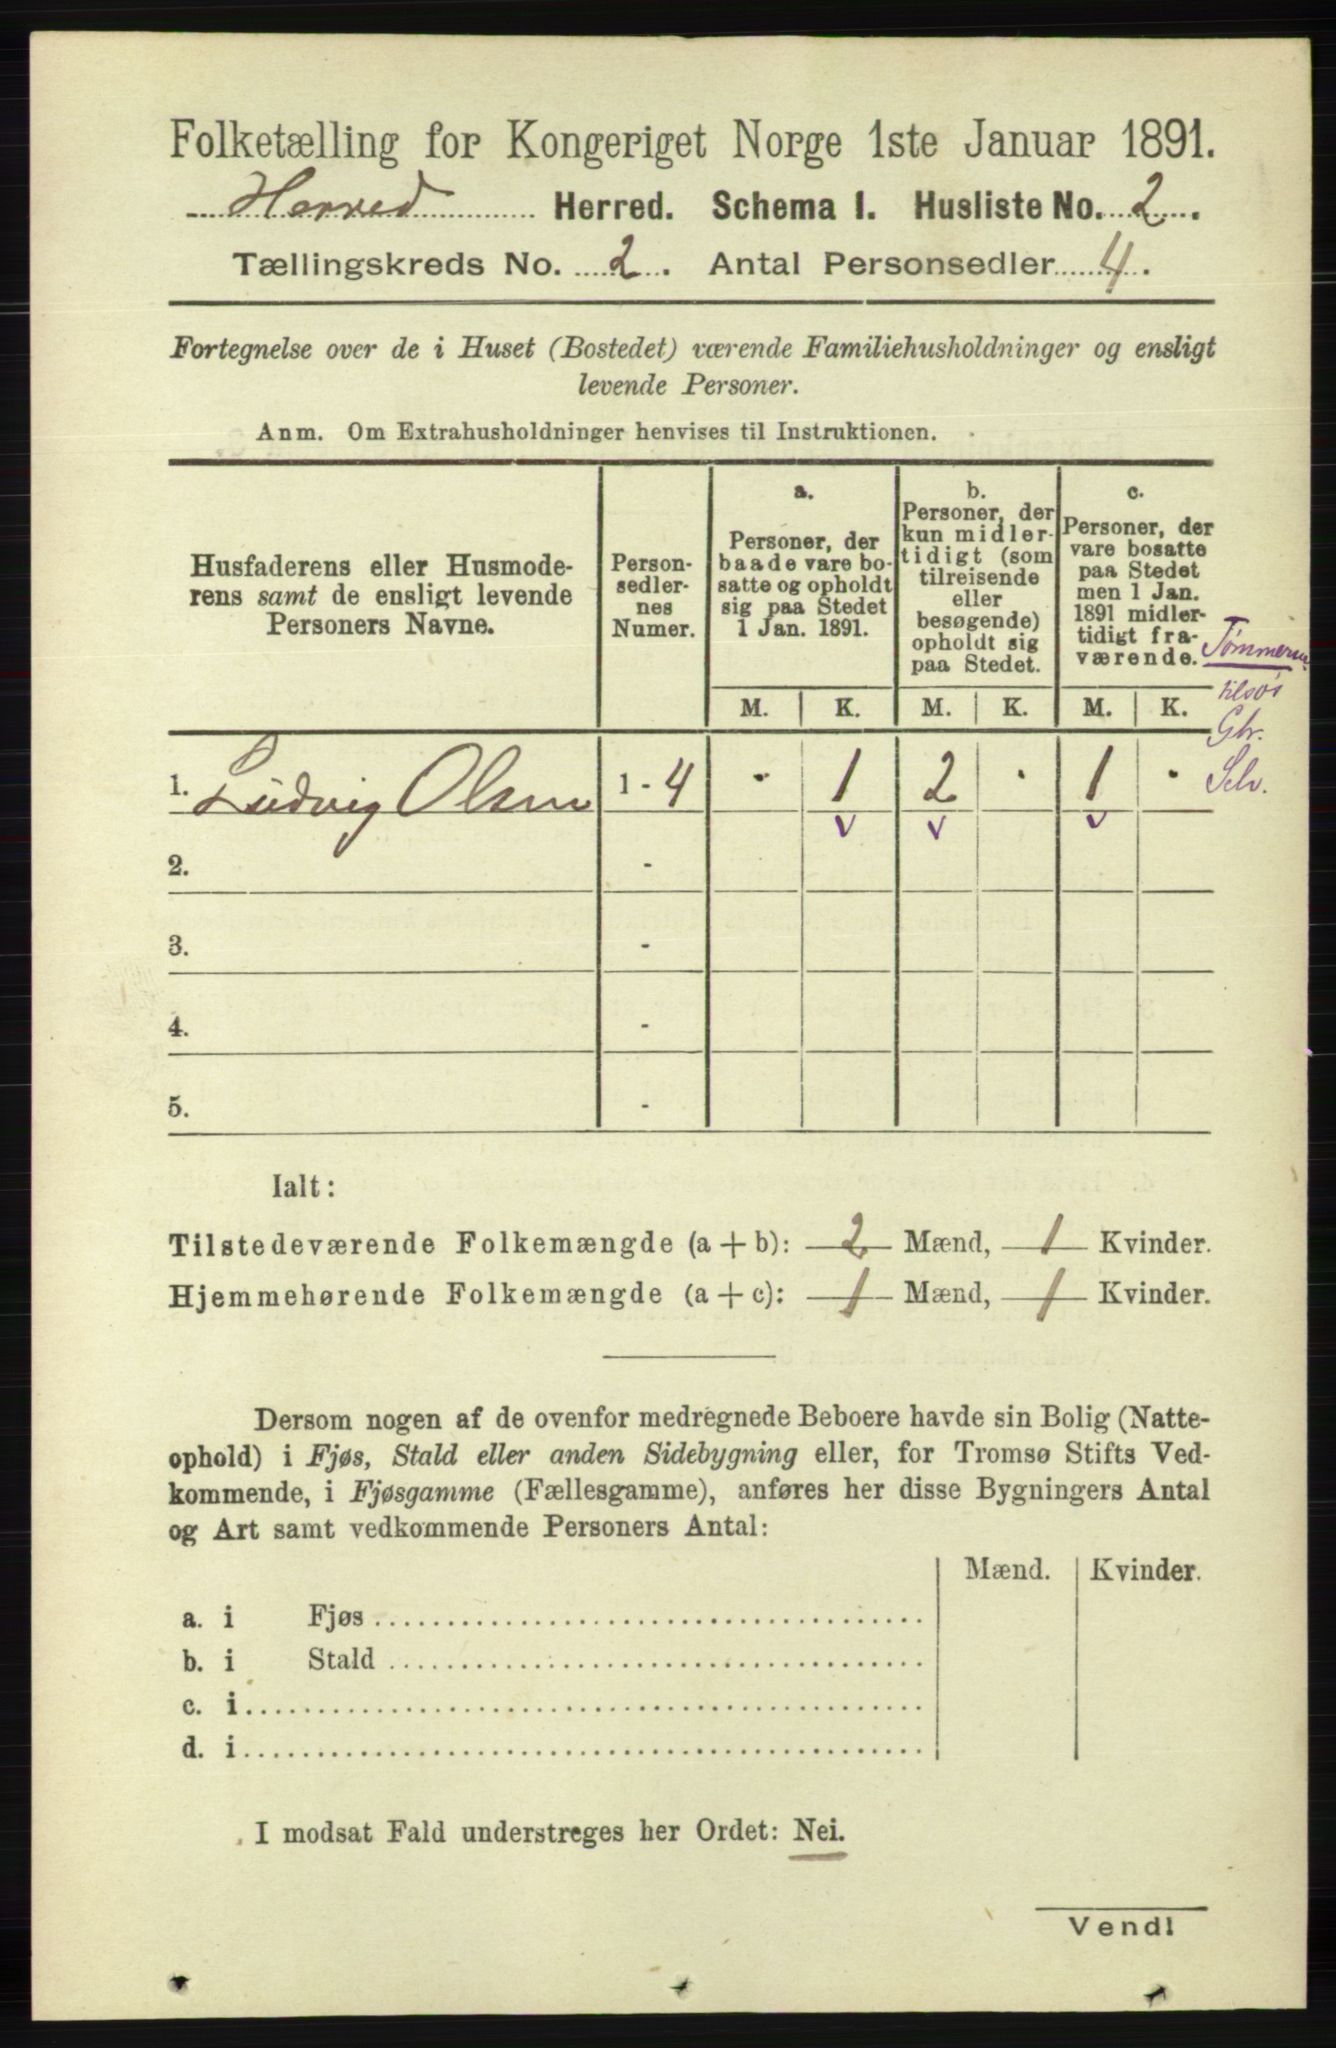 Folketælling for Kongeriget Norge 1ste Januar 1891.
Herred Herred. Schema I. Husliste No. 2.
Tællingskreds No. 2. Antal Personsedler 4.
Fortegnelse over de i Huset (Bostedet) værende Familiehusholdninger og ensligt
levende Personer.
Anm. Om Extrahusholdninger henvises til Instruktionen.
Husfaderens eller Husmode-
rens samt de ensligt levende
Personers Navne.
Person-
sedler-
nes
Numer.
a.
Personer, der
baade vare bo-
satte og opholdt
sig paa Stedet
1 Jan. 1891.
b.
Personer, der
kun midler-
tidigt (som
tilreisende
eller
besøgende)
opholdt sig
paa Stedet.
c.
Personer, der
vare bosatte
paa Stedet
men 1 Jan.
1891 midler-
tidigt fra-
værende.
M. K. M. K. M. K.
tilsøs
Gbr.
Selv.
1. Ludvig Olsen 1 - 4 · 1 2 · 1 ·
v v v
2. -
3. -
4. -
5. -
Ialt:
Tilstedeværende Folkemængde (a + b): 2 Mænd, 1 Kvinder.
Hjemmehørende Folkemængde (a + c): 1 Mænd, 1 Kvinder.
Dersom nogen af de ovenfor medregnede Beboere havde sin Bolig (Natte-
ophold) i Fjøs, Stald eller anden Sidebygning eller, for Tromsø Stifts Ved-
kommende, i Fjøsgamme (Fællesgamme), anføres her disse Bygningers Antal
og Art samt vedkommende Personers Antal:
Mænd. Kvinder.
a. i Fjøs
b. i Stald
c. i
d. i
I modsat Fald understreges her Ordet: Nei.
Vend!